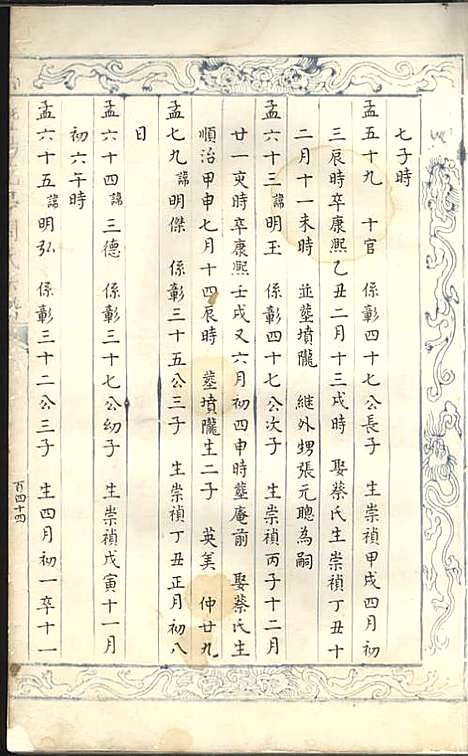 七子時
孟五十九 十官 係彰四十七公長子 生崇禎甲戌四月初
三辰時卒康熙乙丑二月十三戌時 娶蔡氏生崇禎丁丑十
二月十一未時 並塟墳隴 継外甥張元聰為嗣
孟六十三 諱明玉 係彰四十七公次子 生崇禎丙子十二月
廿一寅時卒康熙壬戌又六月初四申時塟庵前 娶蔡氏生
順治甲申七月十四辰時 塟墳隴生二子 英美 仲廿九
孟七九 諱明傑 係彰三十五公三子 生崇禎丁丑正月初八
日
孟六十四 諱三德 係彰三十七公幼子 生崇禎戊寅十一月
初六午時
孟六十五 諱明弘 係彰三十二公三子 生四月初一卒十一
百四十四